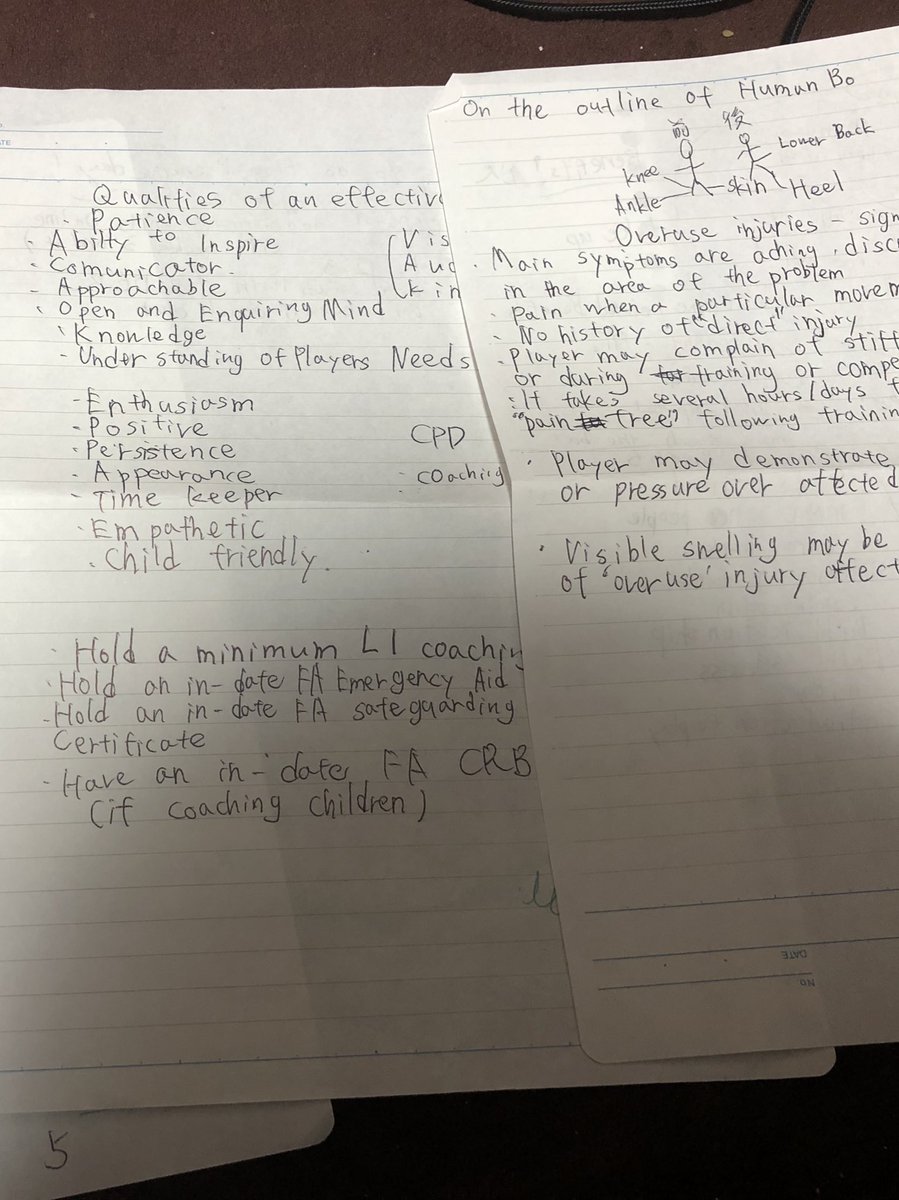 Qualities of an effective
- Patience
- Abilty to Inspire
- Comunicator.
- Approachable
- Open and Enquiring Mind
- Knowledge
- Understanding of Players Needs
- Enthusiasm
- Positive
- Persistence
- Appearance
- Time keeper
- Empathetic
. Child friendly.
Vis
Aud
Kin
CPD
- coaching
- Hold a minimum L1 coaching
- Hold an in-date FA Emergency Aid
- Hold an in-date FA safeguarding
Certificate
- Have an in-date FA CRB
(if coaching children)
5
On the outline of Human Bo
前 後
Knee
Ankle
Skin
Lower Back
Heel
Overuse injuries - sign
. Main symptoms are aching, disco
in the area of the problem
. Pain when a particular movem
- No history of "direct" injury
- Player may complain of stiff
or during training or compe
: It takes several hours/days f
"pain free" following trainin
. Player may demonstrate
or pressure over affected
. Visible swelling may be
of 'overuse' injury affect
DATE
NO.